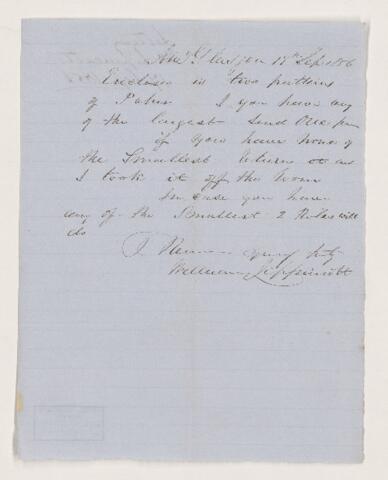 Glasgow 17th Sep 1856
Enclosed is two patterns
of Paper I you have any
of the largest Send One
if you have None of
the Smallest Return it as
I took it off the Room
In Case you have
any of the Smallest 2 Roles will
do
I Remain yours
William Lippincott